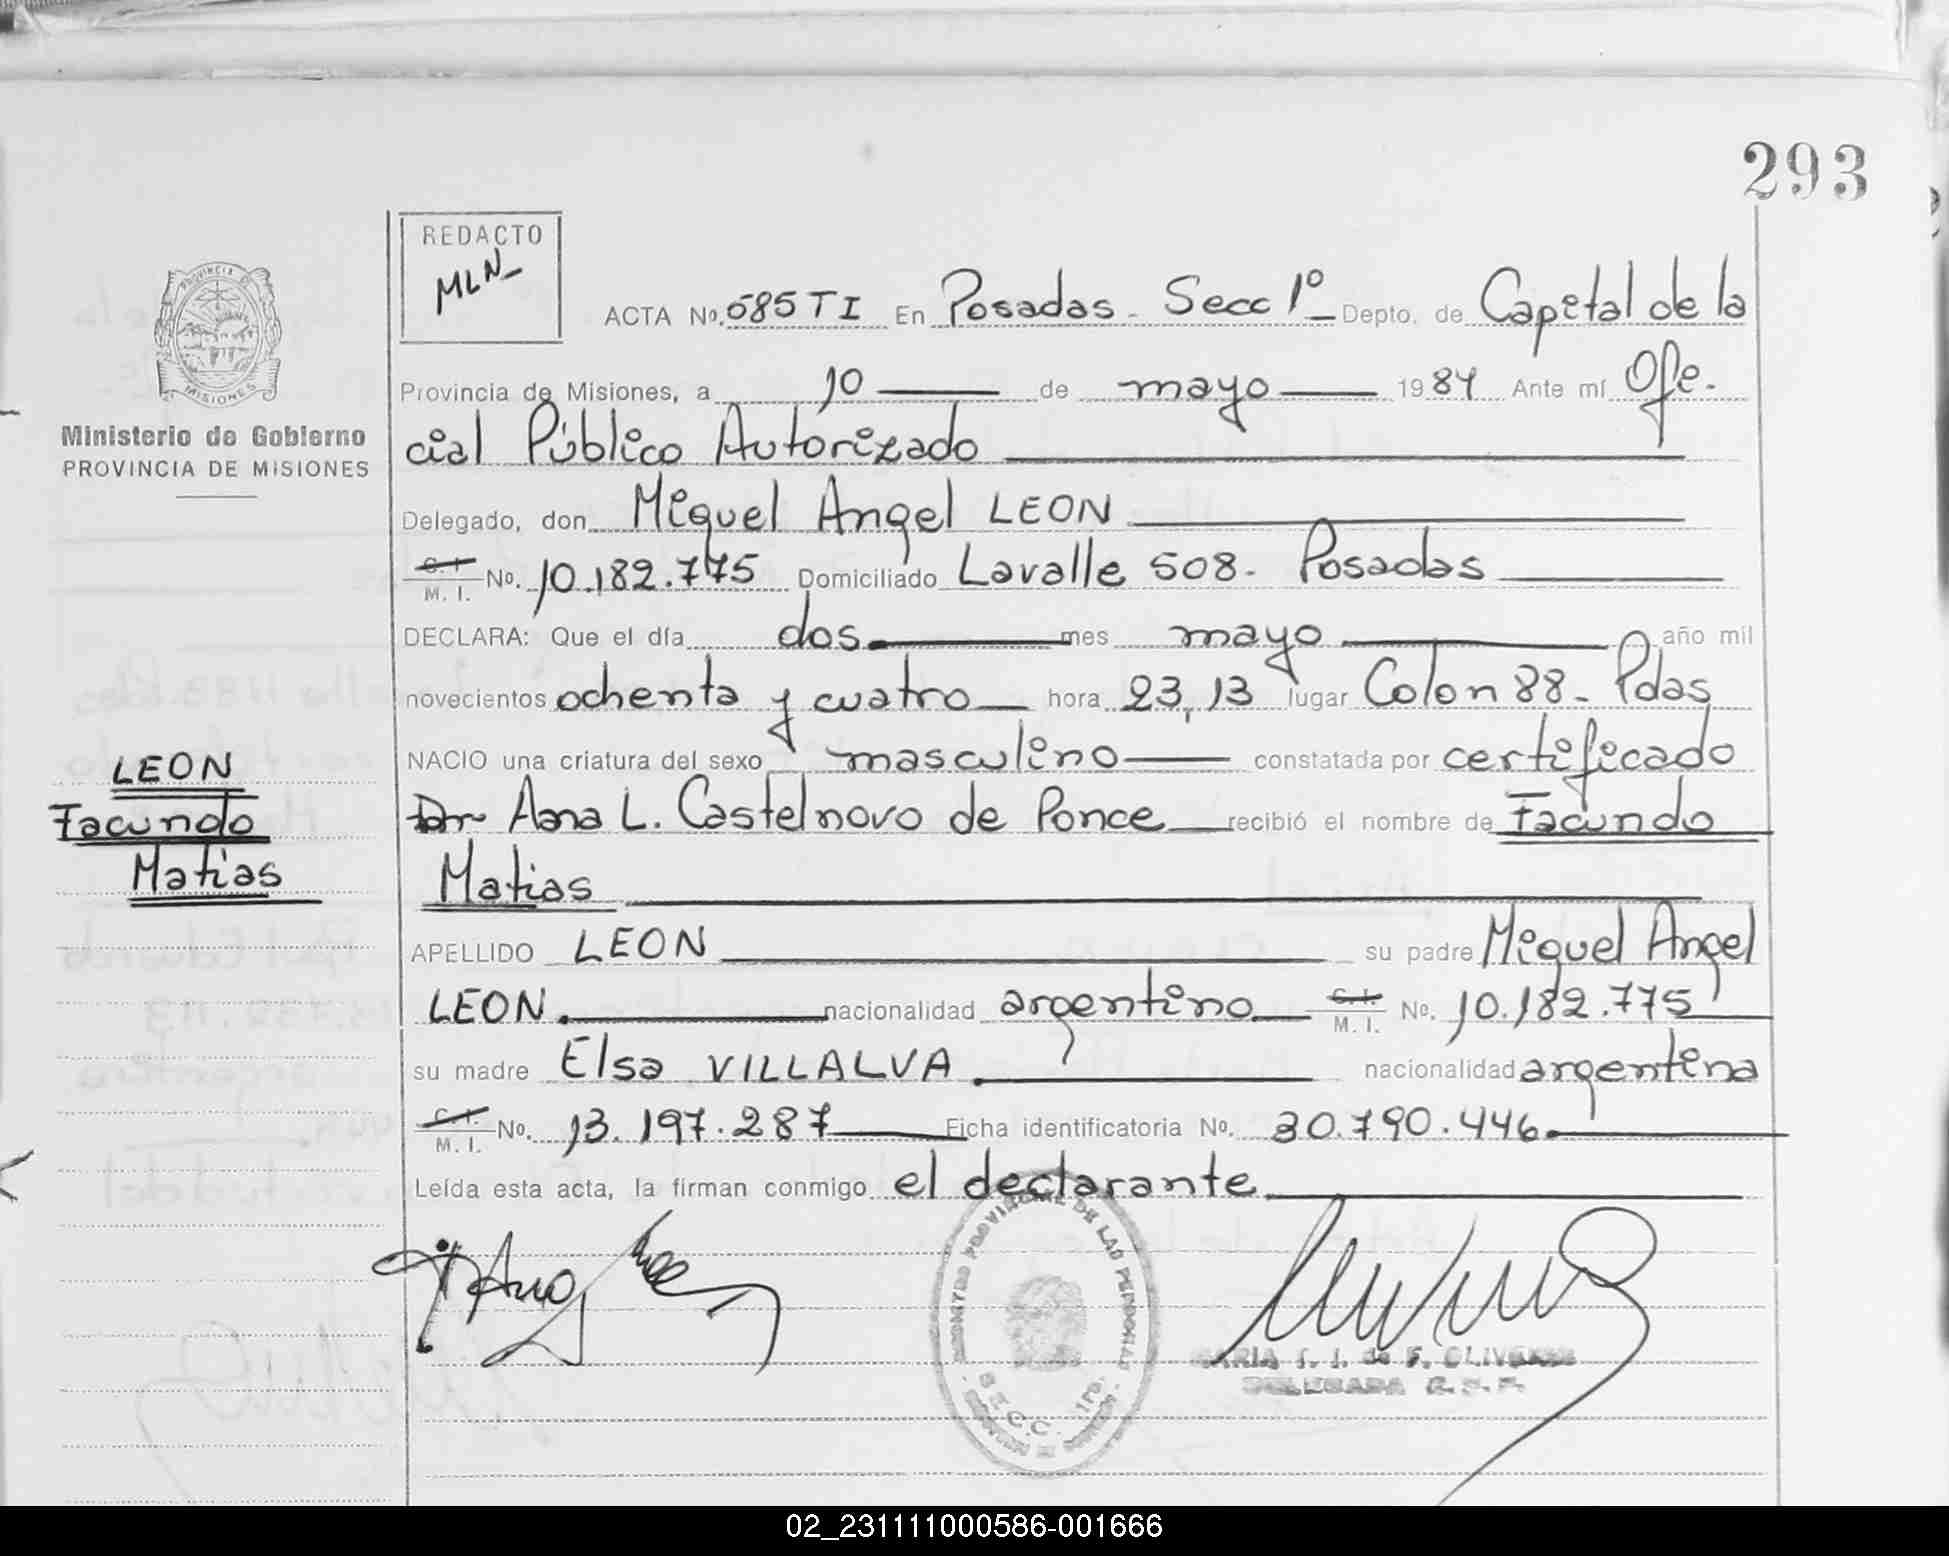 293
REDACTO
MLN-
ACTA No. 585 TI En Posadas - Secc 1º Depto. de Capital de la
Provincia de Misiones, a 10 de mayo 1984 Ante mí Ofi-
cial Público Autorizado
Ministerio de Gobierno
PROVINCIA DE MISIONES
Delegado, don Miguel Angel LEON
C. I. M. I. No. 10.182.775 Domiciliado Lavalle 508 - Posadas
DECLARA: Que el día dos mes mayo año mil
novecientos ochenta y cuatro hora 23,13 lugar Colon 88 - Pdas
NACIO una criatura del sexo masculino constatada por certificado
LEON
Facundo
Matias
Dr Ana L. Castelnovo de Ponce recibió el nombre de Facundo
Matias
APELLIDO LEON su padre Miguel Angel
LEON. nacionalidad argentino C. I. M. I. No. 10.182.775
su madre Elsa VILLALVA. nacionalidad argentina
C. I. M. I. No. 13.197.287 Ficha identificatoria No. 30.790.446.
Leída esta acta, la firman conmigo el declarante.
REGISTRO PROVINCIAL DE LAS PERSONAS
SECC. 1ra.
MARIA I. I. de F. OLIVEIRA
DELEGADA R. P. P.
PROVINCIA D
MISIONES
02_231111000586-001666